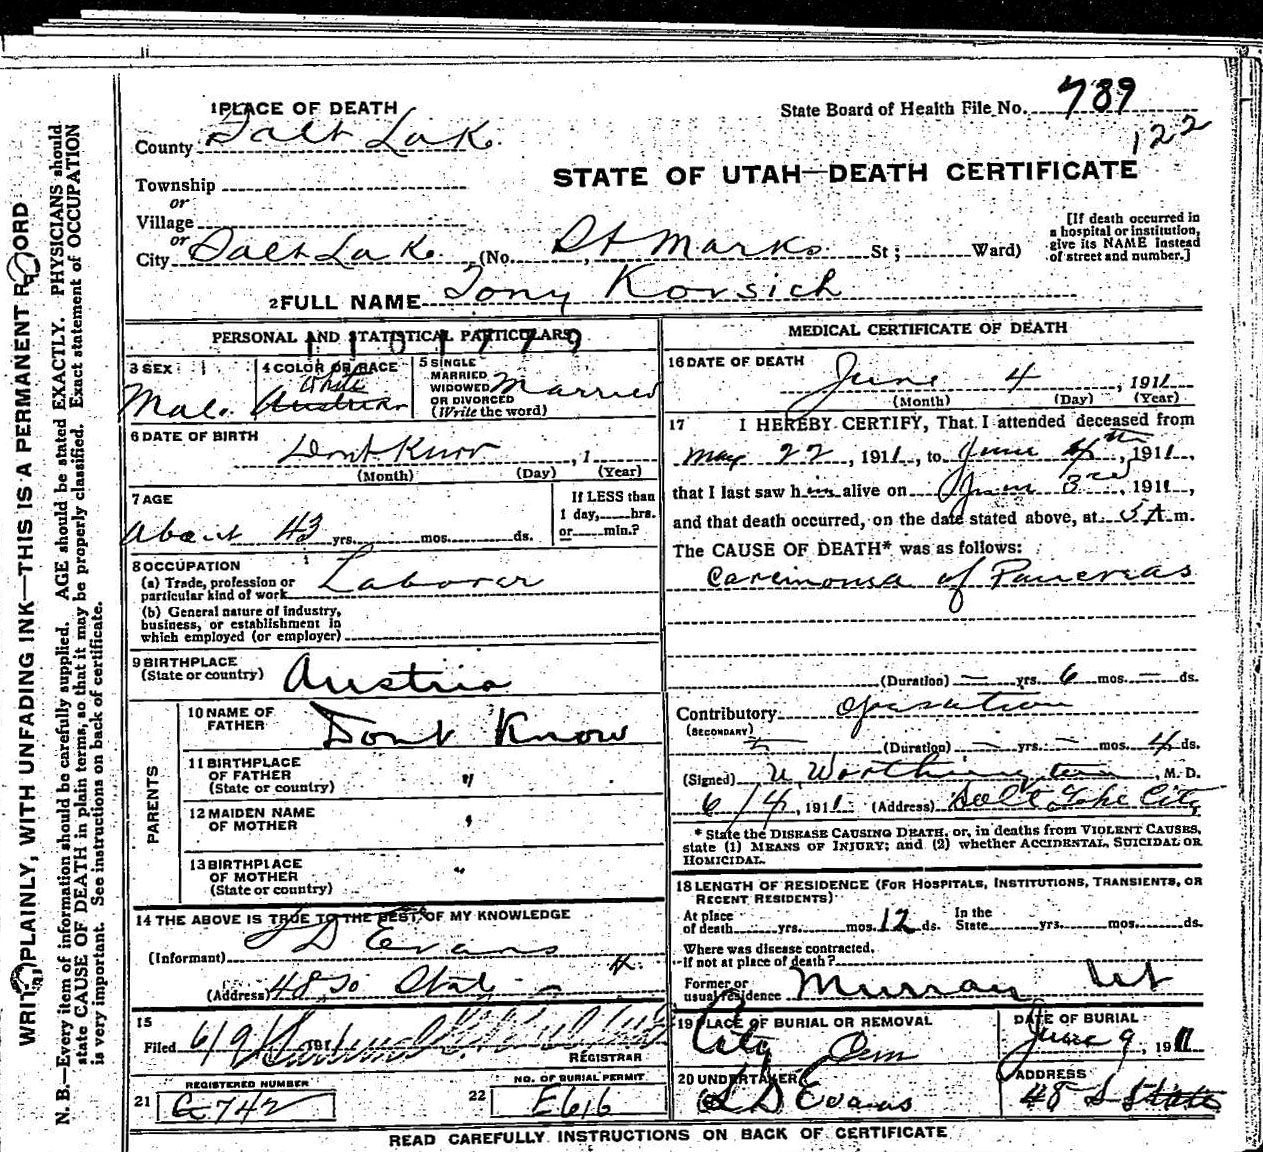 WRITE PLAINLY, WITH UNFADING INK—THIS IS A PERMANENT RECORD
N. B.—Every item of information should be carefully supplied. AGE should be stated EXACTLY. PHYSICIANS should
state CAUSE OF DEATH in plain terms, so that it may be properly classified. Exact statement of OCCUPATION
is very important. See instructions on back of certificate.
1 PLACE OF DEATH
State Board of Health File No. 789
122
County Salt Lake
STATE OF UTAH—DEATH CERTIFICATE
Township
or
Village
or
City Salt Lake (No. St Marks St; Ward)
[If death occurred in
a hospital or institution,
give its NAME instead
of street and number.]
2 FULL NAME Tony Korsich
PERSONAL AND STATISTICAL PARTICULARS
1101779
3 SEX
Male
4 COLOR OR RACE
White
Austrian
5 SINGLE
MARRIED
WIDOWED
OR DIVORCED
(Write the word)
Married
6 DATE OF BIRTH
Dont Know , 1
(Month) (Day) (Year)
7 AGE
About 43 yrs. mos. ds.
If LESS than
1 day, hrs.
or min.?
8 OCCUPATION
(a) Trade, profession or
particular kind of work Laborer
(b) General nature of industry,
business, or establishment in
which employed (or employer)
9 BIRTHPLACE
(State or country) Austria
PARENTS
10 NAME OF
FATHER Dont Know
11 BIRTHPLACE
OF FATHER
(State or country) "
12 MAIDEN NAME
OF MOTHER "
13 BIRTHPLACE
OF MOTHER
(State or country) "
14 THE ABOVE IS TRUE TO THE BEST OF MY KNOWLEDGE
(Informant) S D Evans
(Address) 48 So State
15
Filed 6/9 191
REGISTRAR
21 REGISTERED NUMBER
G742
22 NO. OF BURIAL PERMIT
E616
MEDICAL CERTIFICATE OF DEATH
16 DATE OF DEATH
June 4, 1911
(Month) (Day) (Year)
17 I HEREBY CERTIFY, That I attended deceased from
May 22, 1911, to June 4th, 1911,
that I last saw him alive on June 3rd, 1911,
and that death occurred, on the date stated above, at 5 A m.
The CAUSE OF DEATH* was as follows:
Carcinoma of Pancreas
(Duration) — yrs. 6 mos. — ds.
Contributory operation
(SECONDARY)
(Duration) — yrs. — mos. 4 ds.
(Signed) Worthington, M. D.
6/4, 1911 (Address) Salt Lake City
* State the DISEASE CAUSING DEATH, or, in deaths from VIOLENT CAUSES,
state (1) MEANS OF INJURY; and (2) whether ACCIDENTAL, SUICIDAL OR
HOMICIDAL.
18 LENGTH OF RESIDENCE (FOR HOSPITALS, INSTITUTIONS, TRANSIENTS, OR
RECENT RESIDENTS)
At place
of death yrs. mos. 12 ds.
In the
State yrs. mos. ds.
Where was disease contracted,
If not at place of death?
Former or
usual residence Murray Ut
19 PLACE OF BURIAL OR REMOVAL
City Cem
DATE OF BURIAL
June 9, 1911
20 UNDERTAKER
S D Evans
ADDRESS
48 S State
READ CAREFULLY INSTRUCTIONS ON BACK OF CERTIFICATE